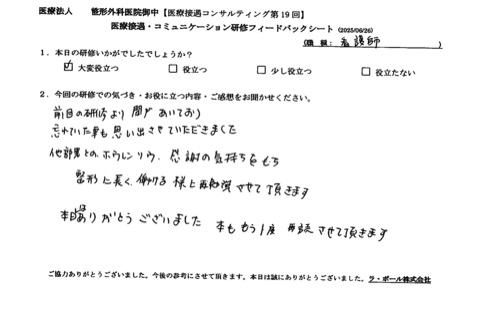 医療法人 整形外科医院御中【医療接遇コンサルティング第19回】
医療接遇・コミュニケーション研修フィードバックシート (2025/06/26)
(職種: 看護師 )
1. 本日の研修いかがでしたでしょうか?
☑ 大変役立つ □ 役立つ □ 少し役立つ □ 役立たない
2. 今回の研修での気づき・お役に立つ内容・ご感想をお聞かせください。
前回の研修より 間があいており
忘れていた事も思い出させていただきました
他部署との ホウレンソウ、感謝の気持ちをもち
整形に長く働ける様に再勉強させて頂きます
本日はありがとうございました 本ももう1度 再読させて頂きます
ご協力ありがとうございました。今後の参考にさせて頂きます。本日は誠にありがとうございました。ラ・ポール株式会社